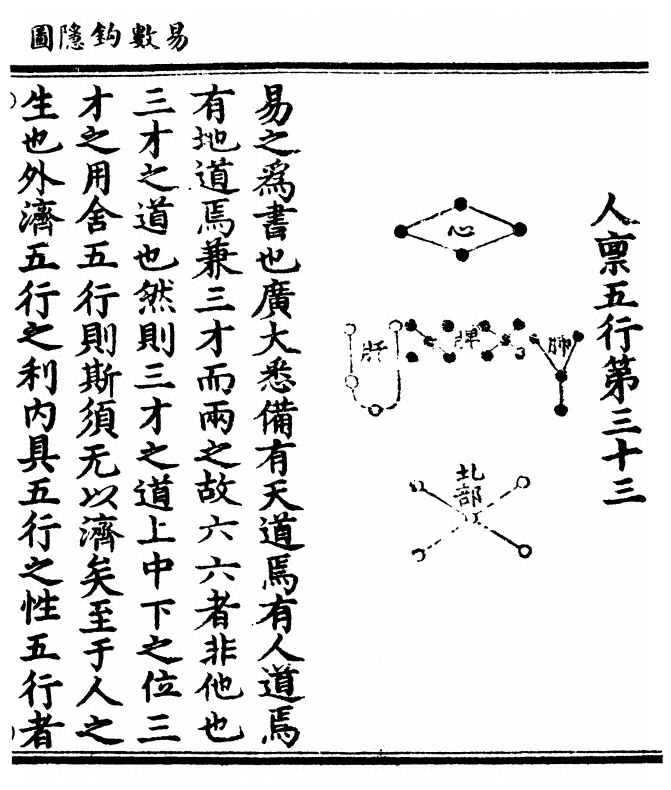 易數鈎隱圖
人禀五行第三十三
心
肺
脾
肝
北
部
易之爲書也廣大悉備有天道焉有人道焉
有地道焉兼三才而兩之故六六者非他也
三才之道也然則三才之道上中下之位三
才之用舍五行則斯須无以濟矣至于人之
生也外濟五行之利内具五行之性五行者